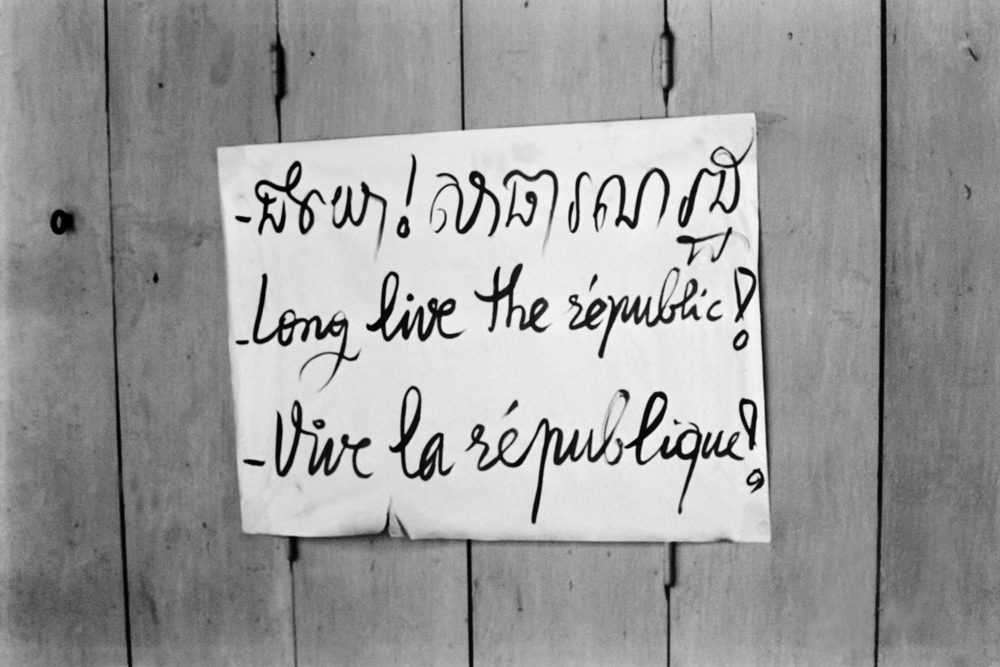 -ជយោ! សាធារណរដ្ឋ
-Long live the républic!
-Vive la république!